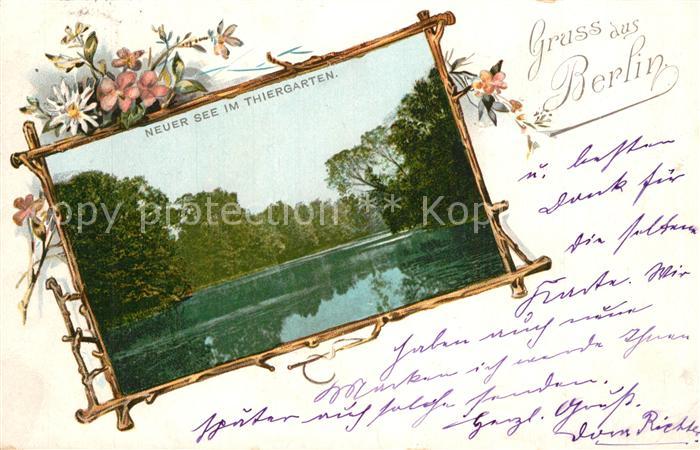 Gruss aus
Berlin
NEUER SEE IM THIERGARTEN.
u. besten
Dank für
die seltene
Karte. Wir
haben auch neue
Marken ich werde Ihnen
später auch solche senden.
Herzl. Gruß.
Dora Richter
copy protection ** Kop